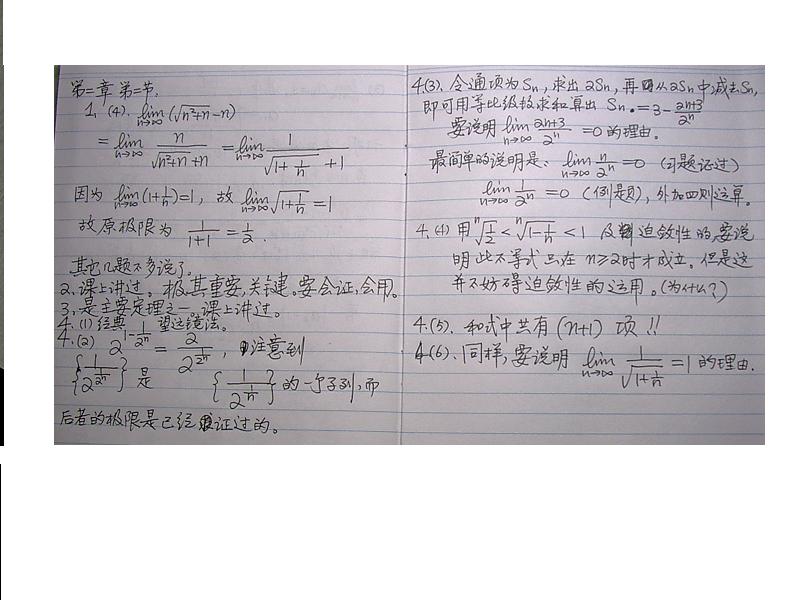 第二章 第二节.
1. (4). lim_{n→∞} (√(n²+n) - n)
= lim_{n→∞} n/(√(n²+n) + n) = lim_{n→∞} 1/(√(1+1/n) + 1)
因为 lim_{n→∞} (1+1/n)=1, 故 lim_{n→∞} √(1+1/n) = 1
故原极限为 1/(1+1) = 1/2.
其它几题不多说了.
2, 课上讲过. 极其重要, 关键. 要会证, 会用.
3, 是主要定理之一. 课上讲过.
4. (1) 经典 望远镜法.
4. (2) 2^{1-1/2^n} = 2/2^{1/2^n}, 注意到
{1/2^{1/2^n}} 是 {1/2^{1/n}} 的一个子列, 而
后者的极限是已经证过的。
4.(3). 令通项为 Sn, 求出 2Sn, 再从 2Sn 中减去 Sn,
即可用等比级数求和算出 Sn = 3 - (2n+3)/2^n
要说明 lim_{n→∞} (2n+3)/2^n = 0 的理由.
最简单的说明是: lim_{n→∞} n/2^n = 0 (习题证过)
lim_{n→∞} 1/2^n = 0 (例题), 外加四则运算.
4.(4) 用 ⁿ√(1/2) < ⁿ√(1-1/n) < 1 及迫敛性的, 要说
明此不等式只在 n≥2 时才成立. 但是这
并不妨碍迫敛性的运用. (为什么?)
4.(5). 和式中共有 (n+1) 项 !!
4(6). 同样, 要说明 lim_{n→∞} 1/√(1+1/n) = 1 的理由.